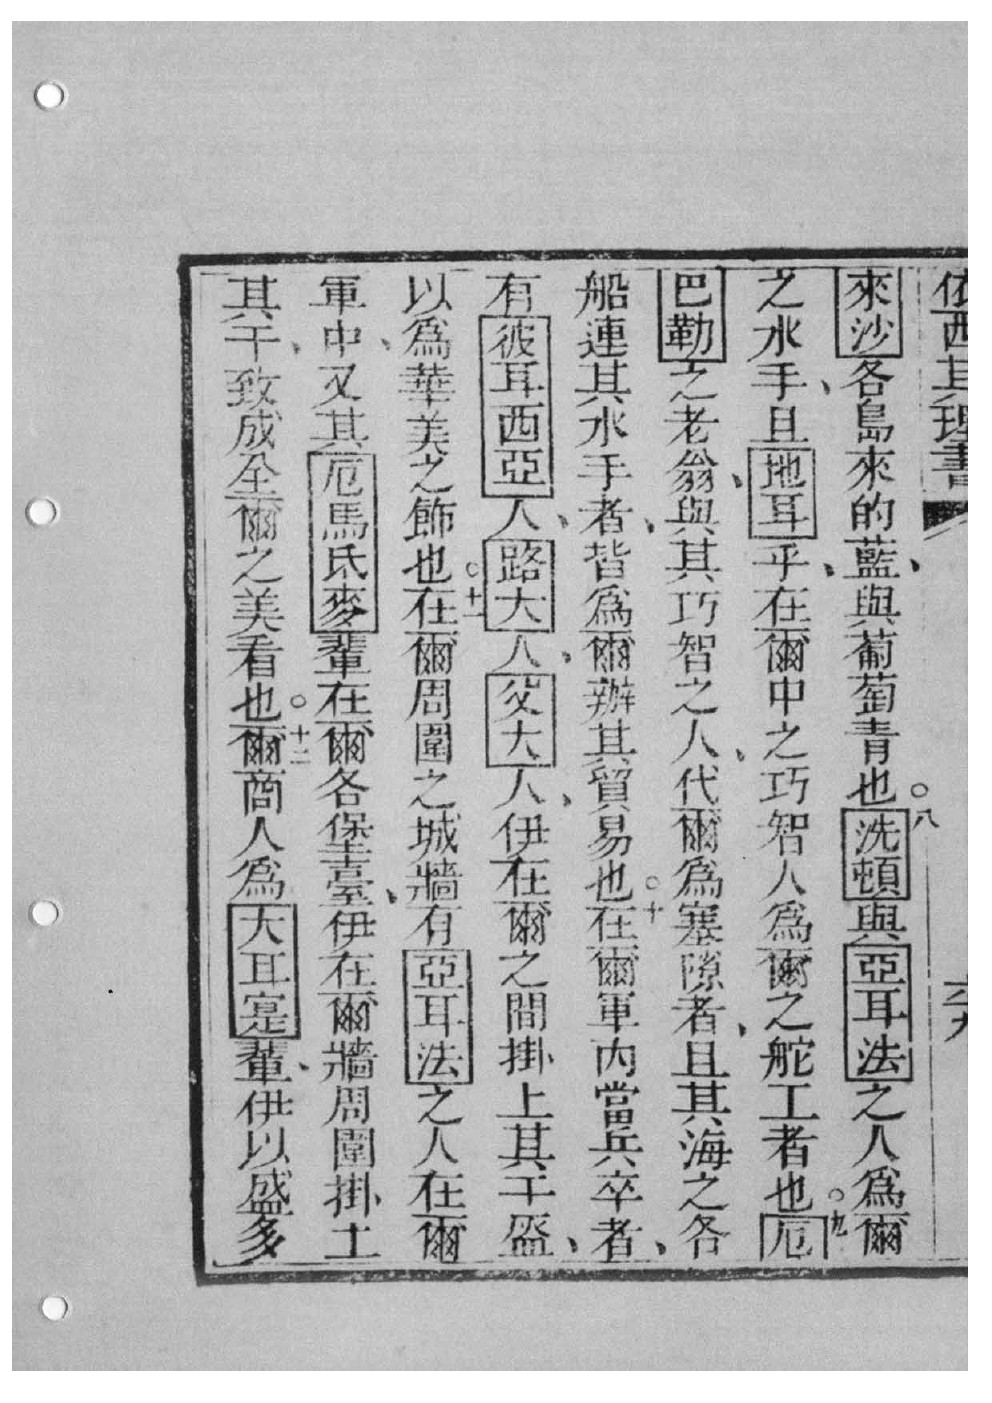 依西其理書 六九
來沙各島來的藍與葡萄青也。八洗頓與亞耳法之人爲爾
之水手、且地耳乎、在爾中之巧智人爲爾之舵工者也。九厄
巴勒之老翁、與其巧智之人、代爾爲塞隙者、且其海之各
船連其水手者、皆爲爾辦其貿易也。十在爾軍內當兵卒者、
有彼耳西亞人、路大人、父大人、伊在爾之間掛上其干盔、
以爲華美之飾也。十一在爾周圍之城牆有亞耳法之人在爾
軍中、又其厄馬氏麥輩在爾各堡臺、伊在爾牆周圍掛上
其干、致成全爾之美看也。十二爾商人爲大耳寔輩、伊以盛多